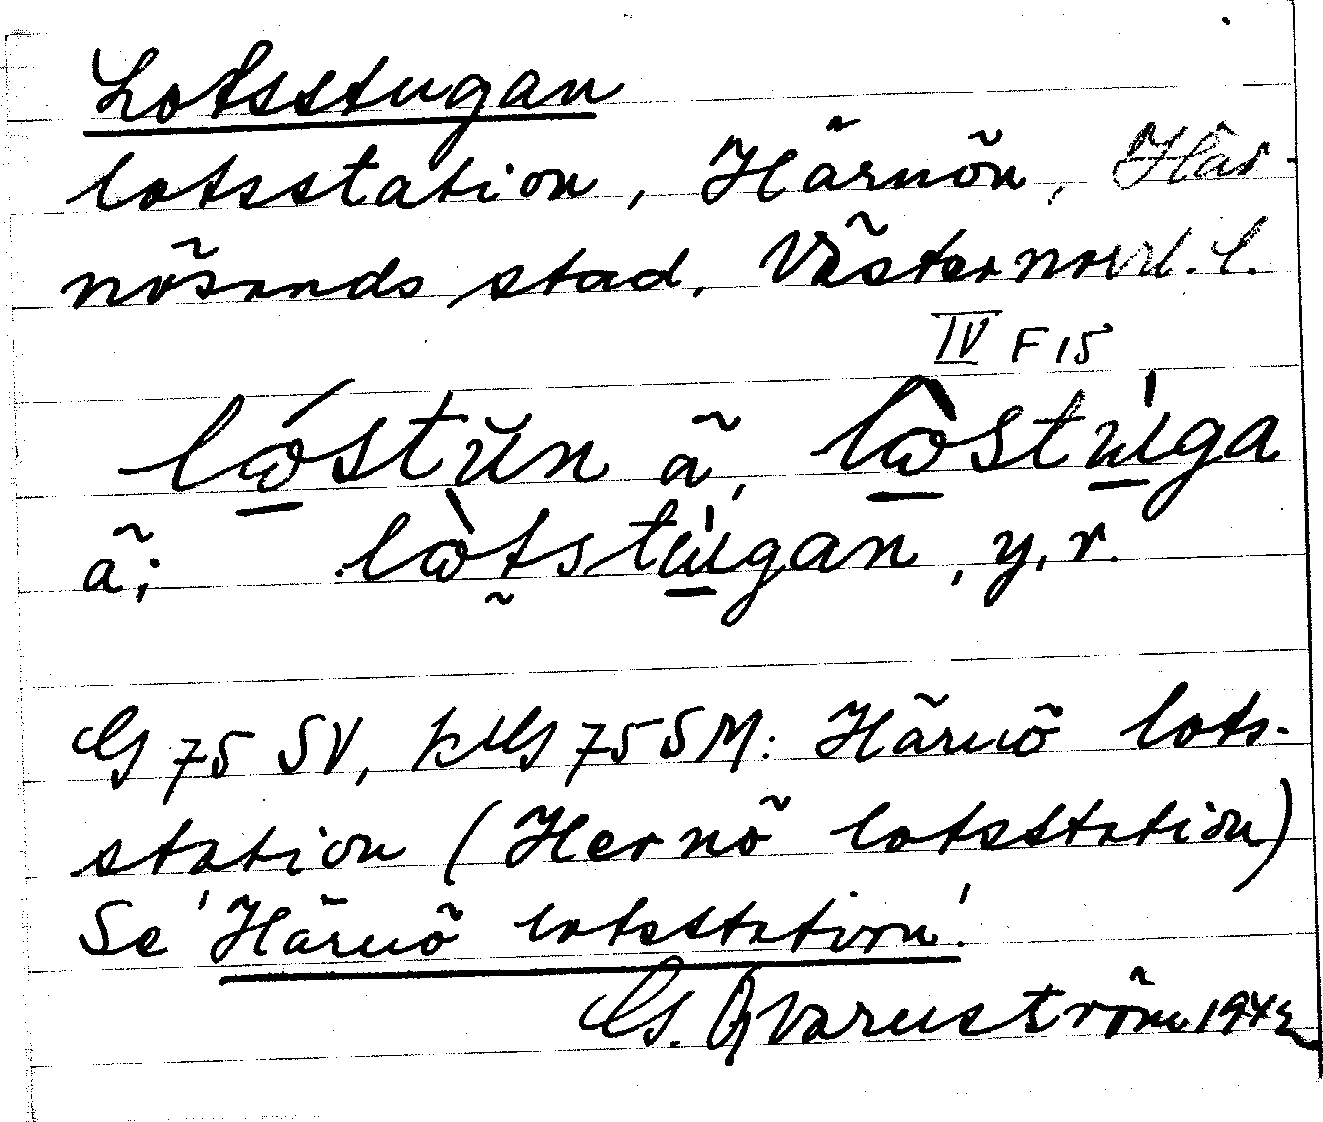 Lotsstugan
lotsstation, Härnön, Här-
nösands stad, Västernorrl. l.
IV F 15
lóstŭn ä, lòstu̍ga
ä; lòtstu̍gan, y.r.
GS 75 SV, KGS 75 SM: Härnö lots-
station (Hernö lotsstation)
Se 'Härnö lotsstation'.
GS. Qvarnström 1942